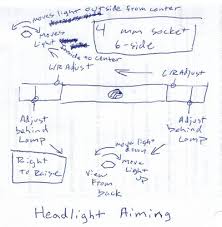 moves light outside from center
moves
Light
side to center
4 mm socket
6-side
L/R Adjust
L/R Adjust
Adjust
behind
Lamp
Adjust
behind
Lamp
Right
to Raise
move light
down
move
Light
up
View
From
back
Headlight Aiming